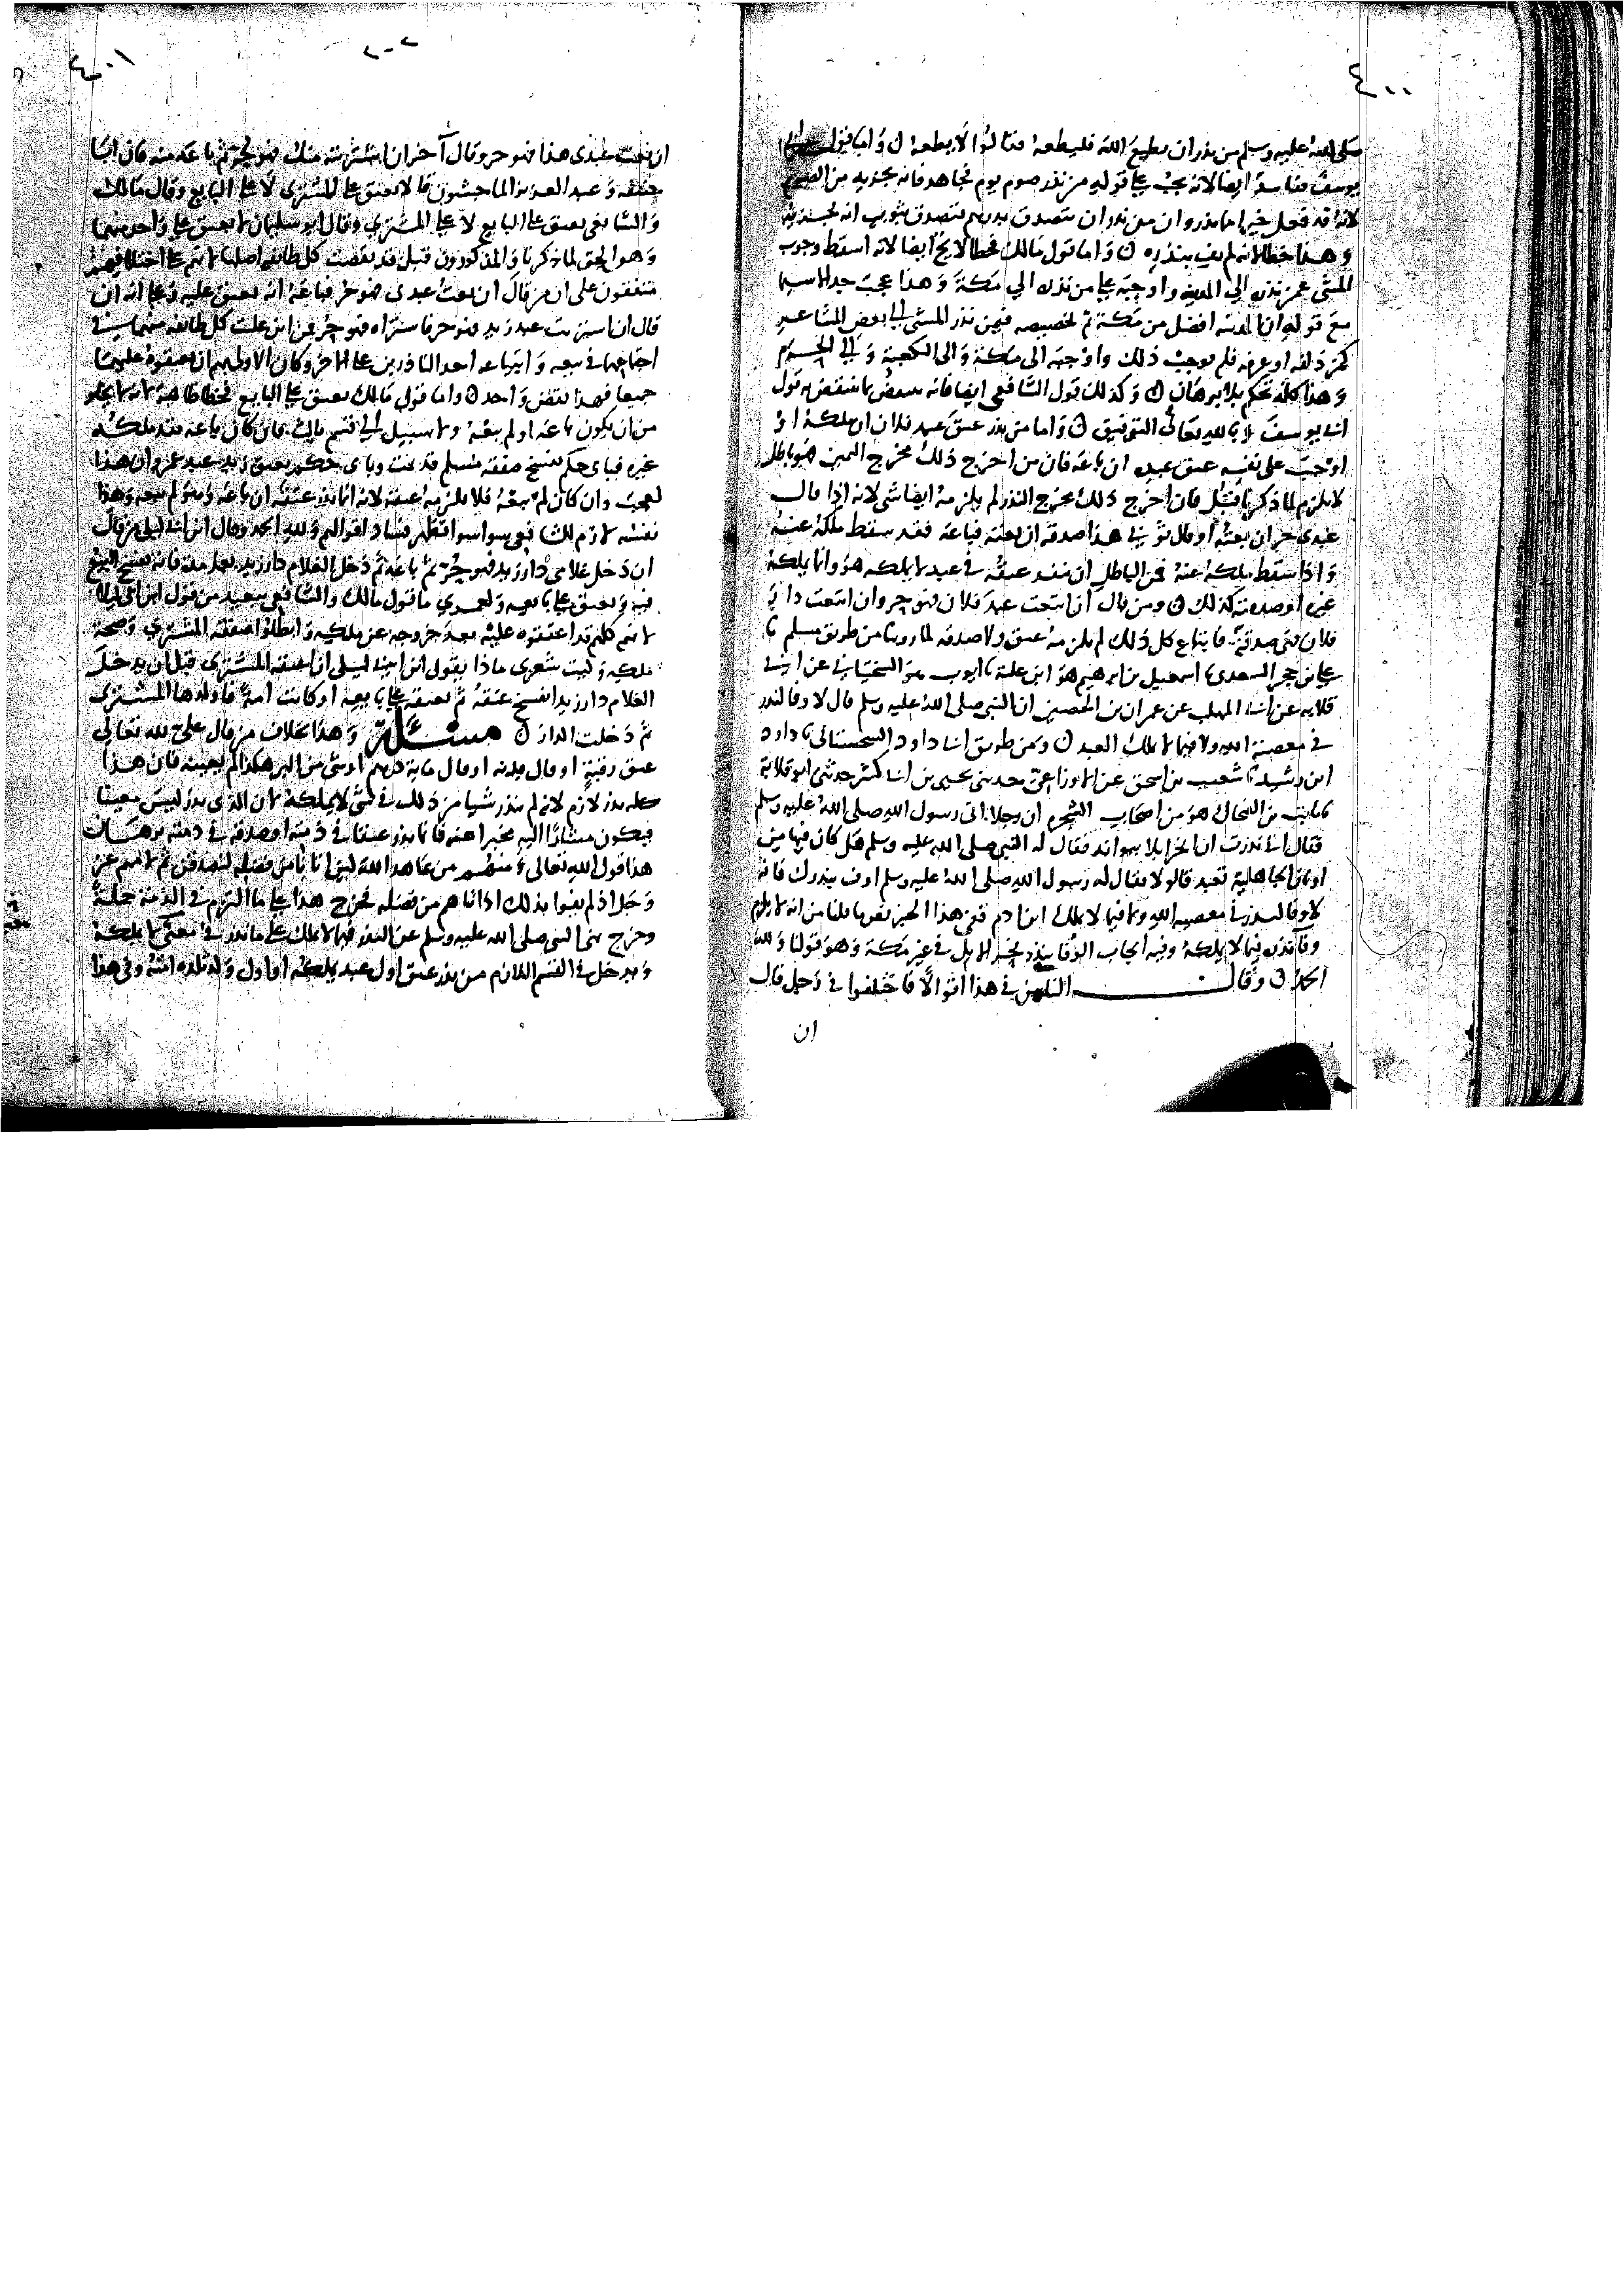 ٤٠٠
صلى الله عليه وسلم من نذر ان يطيع الله فليطعه فقالوا لا يطعه ن واما قول ابي
يوسف ففاسد ايضا لانه يجب على قوله من نذر صوم يوم فجاهد فانه يجزيه من الصوم
لانه قد فعل خيرا مما نذر وان من نذر ان يتصدق بدرهم فتصدق بثوب انه يجزيه
وهذا خطا لانه لم يف بنذره ن واما قول مالك فخطا لا يخ ايضا لانه اسقط وجوب
المشي عمن نذره الي المدينة واوجبه على من نذره الي مكة وهذا عجب جدا لا سيما
مع قوله ان المدينة افضل من مكة ثم تخصيصه فيمن نذر المشي الي بعض المشاعر
كمزدلفه او عرفه فلم يوجب ذلك واوجبه الى مكة والى الكعبة والي الحرم
وهذا كله تحكم بلا برهان ن وكذلك قول الشافعي ايضا فانه ينتقض بما ينتقض به قول
ابي يوسف لا بالله تعالى التوفيق ن واما من نذر عتق عبد فلان ان ملكه او
اوجب على نفسه عتق عبده ان باعه فان من اخرج ذلك مخرج اليمين فهو باطل
لا يلزم لما ذكرنا قبل فان اخرج ذلك مخرج النذر لم يلزمه ايضا شي لانه اذا قال
عبدي حر ان بعته او قال ثوبي هذا صدقة ان بعته فباعه فقد سقط ملكه عنه
واذا سقط ملكه عنه فمن الباطل ان ينفد عتقه في عبد لا يملكه هو وانما يملكه
غيره او صدقته كذلك ن ومن قال ان ابتعت عبد فلان فهو حر وان ابتعت دابة
فلان فهي صدقة فابتاع كل ذلك لم يلزمه عتق ولا صدقه لما روينا من طريق مسلم نا
علي بن حجر السعدي نا اسمعيل بن ابرهيم هو ابن علية نا ايوب هو السختياني عن ابي
قلابه عن ابي المهلب عن عمران بن الحصين ان النبي صلى الله عليه وسلم قال لا وفا لنذر
في معصية الله ولا فيما لا يملك العبد ن ومن طريق ابي داود السجستاني نا داود
ابن رشيد نا شعيب بن اسحق عن الاوزاعي حدثني يحيى بن ابي كثير حدثني ابو قلابة
نا ثابت بن الضحاك هو من اصحاب الشجره ان رجلا اتى رسول الله صلى الله عليه وسلم
فقال اني نذرت ان انحر ابلا ببوانه فقال له النبي صلى الله عليه وسلم هل كان فيها من
اوثان الجاهلية تعبد قالوا لا فقال له رسول الله صلى الله عليه وسلم اوف بنذرك فانه
لا وفا لنذر في معصية الله ولا فيما لا يملك ابن ادم ففي هذا الخبر نص ما قلنا من انه لا يلزم
وفا نذره فيما لا يملكه وفيه ايجاب الوفا بنذر نحر الابل في غير مكة وهو قولنا ولله
الحمد ن وقال الناس في هذا اقوالا فاختلفوا في رجل قال
ان
٤٠١
٢٠٢
ان بعت عبدي هذا فهو حر وقال آخر ان اشتريته منك فهو حر ثم باعه منه فان ابا
حنيفه وعبد العزيز الماجشون قالا يعتق على المشتري لا على البايع وقال مالك
والشافعي يعتق على البايع لا على المشتري وقال ابو سليمان لا يعتق على واحد منهما
وهو الحق لما ذكرنا والمذكورون قبل قد نقضت كل طايفه اصلها لانهم على اختلافهم
متفقون على ان من قال ان بعت عبدي فهو حر فباعه انه يعتق عليه وعلى انه ان
قال ان اشتريت عبد زيد فهو حر فاشتراه فهو حر فمن اين غلبت كل طايفه منهما في
اجتماعهما في بيعه وابتياعه احد الناذرين على الاخر وكان الاولى بهم ان يعتقوه عليهما
جميعا فهذا تناقض واحد ن واما قول مالك يعتق على البايع فخطا ظاهر لانه لا يخلو
من ان يكون باعه او لم يبعه ولا سبيل الي قسم ثالث فان كان باعه فقد ملكه
غيره فباي حكم تفسخ صفقه مسلم قد تمت وباي حكم يعتق زيد عبد عمرو ان هذا
لعجب وان كان لم يبعه فلا يلزمه عتقه لانه انما نذر عتقه ان باعه وهو لم يبعه وهذا
نفسه لازم للشافعي سوا سوا فظهر فساد اقوالهم ولله الحمد وقال ابن ابي ليلى من قال
ان دخل غلامي دار زيد فهو حر ثم باعه ثم دخل الغلام دار زيد بعد مدة فانه يفسخ البيع
فيه ويعتق على بايعه ولعمري ما قول مالك والشافعي ببعيد من قول ابن ابي ليلى
لانهم كلهم قد اعتقوه عليه بعد خروجه عن ملكه وابطلوا صفقة المشتري وصحة
ملكه وليت شعري ماذا يقول ابن ابي ليلى ان اعتقه المشتري قبل ان يدخل
الغلام دار زيد ايفسخ عتقه ثم يعتقه على بايعه او كانت امة فاولدها المشتري
ثم دخلت الدار ن مسئلة وهذا بخلاف من قال علي لله تعالى
عتق رقبة او قال بدنه او قال ماية درهم او شي من البر هكذا لم يعينه فان هذا
كله نذر لازم لانه لم ينذر شيا من ذلك في شي لا يملكه لان الذي نذر ليس معينا
فيكون مشارا اليه مخبرا عنه فانما نذر عتقا في ذمته او صدقه في ذمته برهان
هذا قول الله تعالى ومنهم من عاهد الله لين اتانا من فضله لنصدقن ثم لامهم عز
وجل اذ لم يفوا بذلك اذ اتاهم من فضله فخرج هذا على ما التزم في الذمة جملة
وخرج نهى النبي صلى الله عليه وسلم عن النذر فيما لا يملك على ما نذر في معين لا يملكه
ويدخل في القسم اللازم من نذر عتق اول عبد يملكه او اول ولد تلده امته وفي هذا